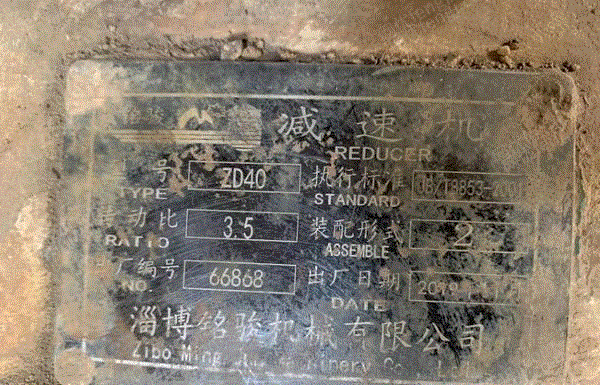 减速机
REDUCER
号 ZD40 执行标准
TYPE STANDARD
动比 3.5 装配形式 2
RATIO ASSEMBLE
厂编号 66868 出厂日期
NO. DATE
淄博铭骏机械有限公司
Zibo Ming